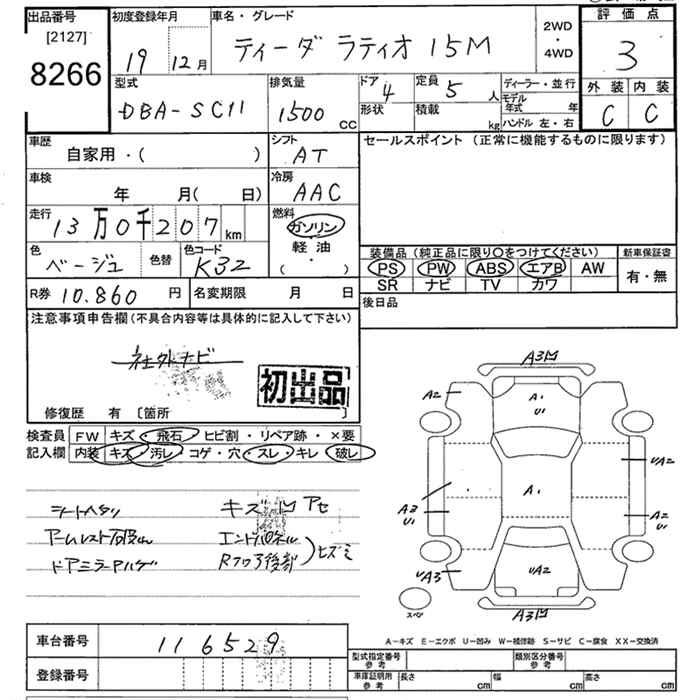 出品番号 初度登録年月 車名・グレード 2WD・4WD 評価点
[2127]
8266
19 12月 ティーダ ラティオ 15M 3
型式 排気量 ドア 4 定員 5人 ディーラー・並行 外装 内装
DBA-SC11 1500cc 形状 積載 kg モデル年式 年 C C
ハンドル 左・右
車歴 シフト セールスポイント (正常に機能するものに限ります)
自家用・( ) AT
車検 冷房
年 月( 日) AAC
走行 燃料
13万0千207km ガソリン
軽油
( ・ )
色 色替 色コード 装備品 (純正品に限り○をつけてください) 新車保証書
ベージュ K32 PS PW ABS エアB AW 有・無
SR ナビ TV カワ
R券 10.860円 名変期限 月 日 後日品
注意事項申告欄(不具合内容等は具体的に記入して下さい)
社外ナビ
初出品
修復歴 有 [箇所 ]
検査員 FW キズ・飛石・ヒビ割・リペア跡・×要
記入欄 内装 キズ・汚レ・コゲ・穴・スレ・キレ・破レ
シートヘタリ キズ 凹 アセ
ドアミラーハゲ
エンドパネル
Rフロア後部
ヒズミ
A3凹
A2
A1
U1
UA2
A3
U1
A1
A2
U1
UA3
UA2
A3凹
スペア
A-キズ E-エクボ U-凹み W-補修跡 S-サビ C-腐食 XX-交換済
車台番号 116529 型式指定番号 参考 類別区分番号 参考
登録番号 車庫証明用 参考 長さ cm 幅 cm 高さ cm